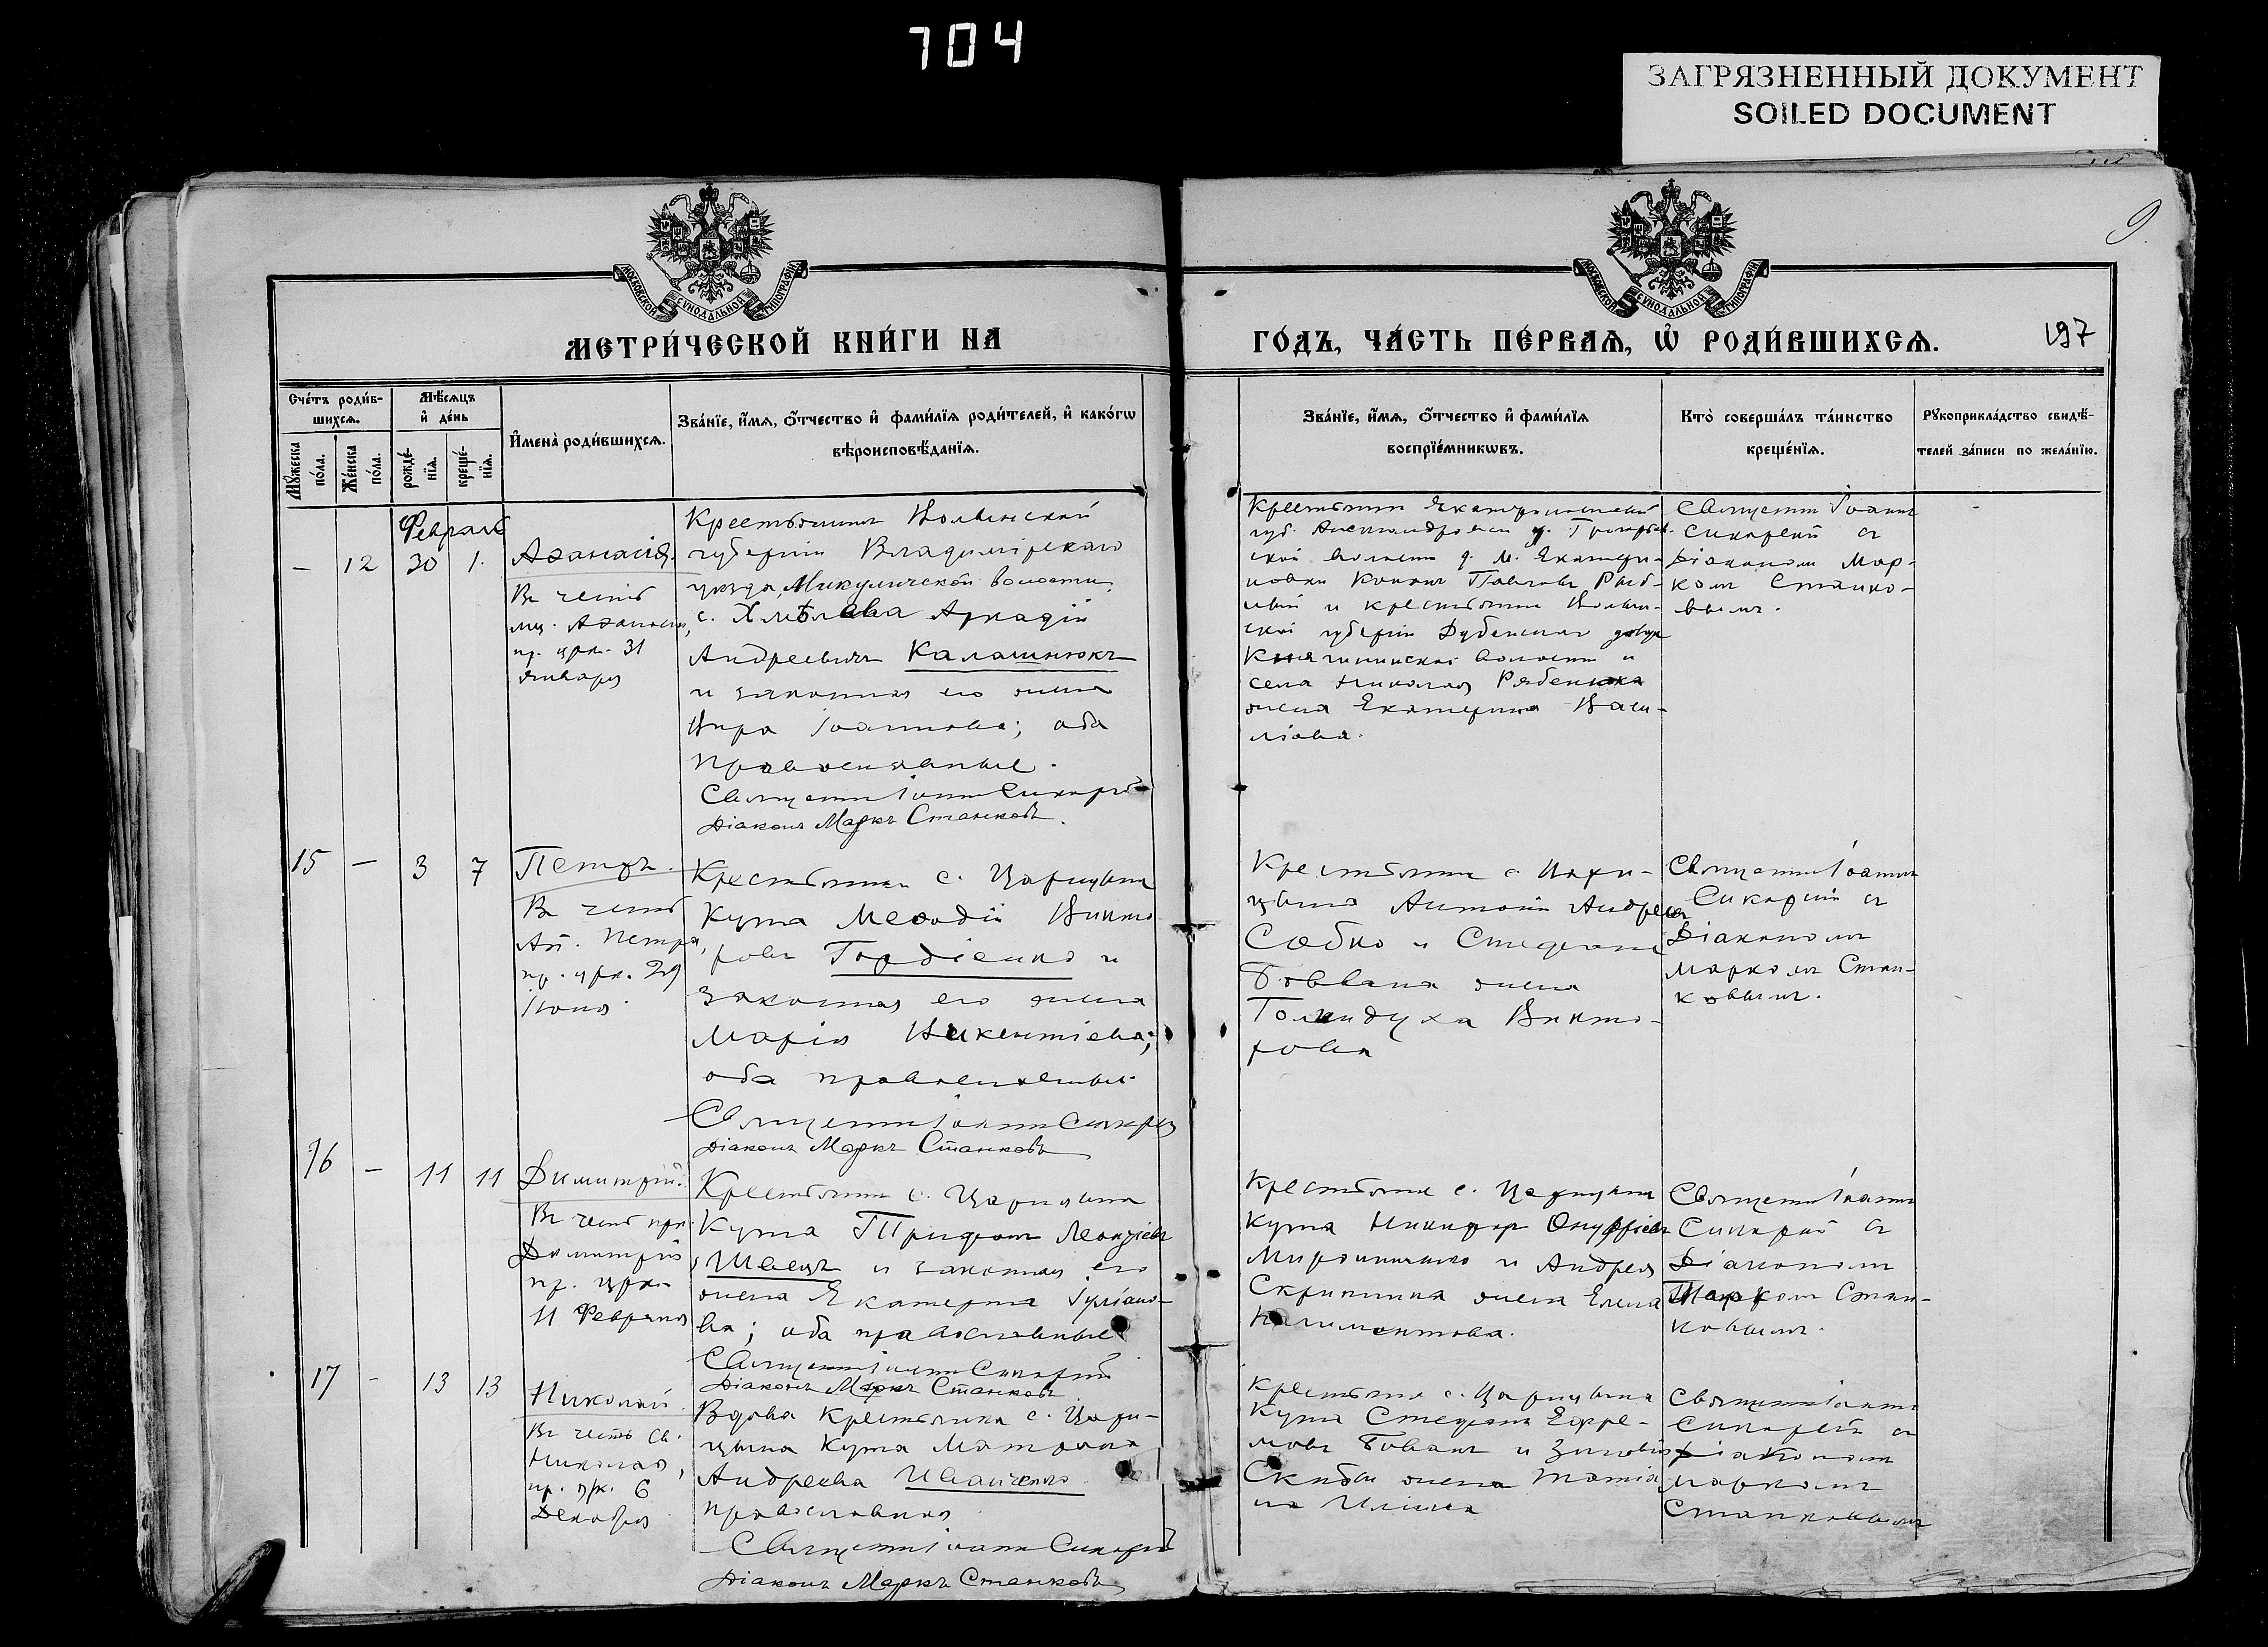 704
ЗАГРЯЗНЕННЫЙ ДОКУМЕНТ
SOILED DOCUMENT
9
МОСКОВСКОЙ СѴНОДАЛЬНОЙ ТИПОГРАФІИ
МОСКОВСКОЙ СѴНОДАЛЬНОЙ ТИПОГРАФІИ
МЕТРИ́ЧЕСКОЙ КНИ́ГИ НА
ГО́ДЪ, ЧА́СТЬ ПЕ́РВАѦ, Ѡ҆ РОДИ́ВШИХСѦ.
197
Сче́тъ роди́в-
шихсѧ.
Мꙋ́жеска
по́ла.
Же́нска
по́ла.
Мѣ́сѧцъ
и҆ де́нь
рожде́-
нїѧ.
креще́-
нїѧ.
И҆мена̀ роди́вшихсѧ.
Зва́нїе, и҆́мѧ, ѻ҆́тчество и҆ фами́лїѧ роди́телей, и҆ како́гѡ
вѣроисповѣ́данїѧ.
Зва́нїе, и҆́мѧ, ѻ҆́тчество и҆ фами́лїѧ
воспрїе́мникѡвъ.
Кто̀ соверша́лъ та́инство
креще́нїѧ.
Рꙋкоприкла́дство свидѣ́-
телей за́писи по жела́нїю.
Февраль
– 12 30 1.
Аѳанасія.
Въ честь
мц. Аѳанасіи,
пр. црк. 31
Января
Крестьянинъ Волынской
губерніи Владимірскаго
уѣзда, Микуличской волости
с. Хмѣлева Аркадій
Андреевичъ Калашнюкъ
и законная его жена
Вѣра Іоаннова; оба
православные.
Священникъ Іоаннъ Сикорскій
Діаконъ Маркъ Станковъ.
Крестьянинъ Екатеринославской
губ. Александровскаго у. Григорьев-
ской волости д. М. Екатери-
новки Павловъ
и крестьянина Волын-
ской губерніи Дубенскаго уѣзда
Княгининской волости и
села Николая Рябенюка
жена Екатерина Васи-
ліева.
Священникъ Іоаннъ
Сикорскій съ
діакономъ Мар-
комъ Станко-
вымъ.
15 – 3 7
Петръ.
Въ честь
Ап. Петра,
пр. црк. 29
Іюня
Крестьянинъ с. Царицына
Кута Меѳодій Викто-
ровъ Гордіенко и
законная его жена
Марія Викентіева;
оба православные.
Священникъ Іоаннъ Сикорскій
Діаконъ Маркъ Станковъ
Крестьянинъ с. Цари-
цына Антоній Андреевъ
Собко и Стефана
Боввана жена
Голиндуха Викто-
рова
Священникъ Іоаннъ
Сикорскій съ
Діакономъ
Маркомъ Стан-
ковымъ.
16 – 11 11
Димитрій.
Въ честь прп.
Димитрія
пр. црк.
11 Февраля
Крестьянинъ с. Царицына
Кута Трифонъ Леонтіевъ
Швецъ и законная его
жена Екатерина Іуліано-
ва; оба православные
Священникъ Іоаннъ Сикорскій
Діаконъ Маркъ Станковъ
Крестьянинъ с. Царицына
Кута Никифоръ Онуфріевъ
Мирошниченко и Андрея
Скрипника жена Елена
Климентова.
Священникъ Іоаннъ
Сикорскій съ
Діакономъ
Маркомъ Стан-
ковымъ.
17 – 13 13
Николай.
Въ честь св.
Николая,
пр. црк. 6
Декабря
Вдова крестьянка с. Цари-
цына Кута Матрона
Андреева Иванченко
православная
Священникъ Іоаннъ Сикорскій
Діаконъ Маркъ Станковъ
Крестьянинъ с. Царицына
Кута Стефанъ Ефре-
мовъ Бованъ и Зиновія
Скибы жена Татіа-
на Ильина
Священникъ Іоаннъ
Сикорскій съ
діакономъ
Маркомъ
Станковымъ